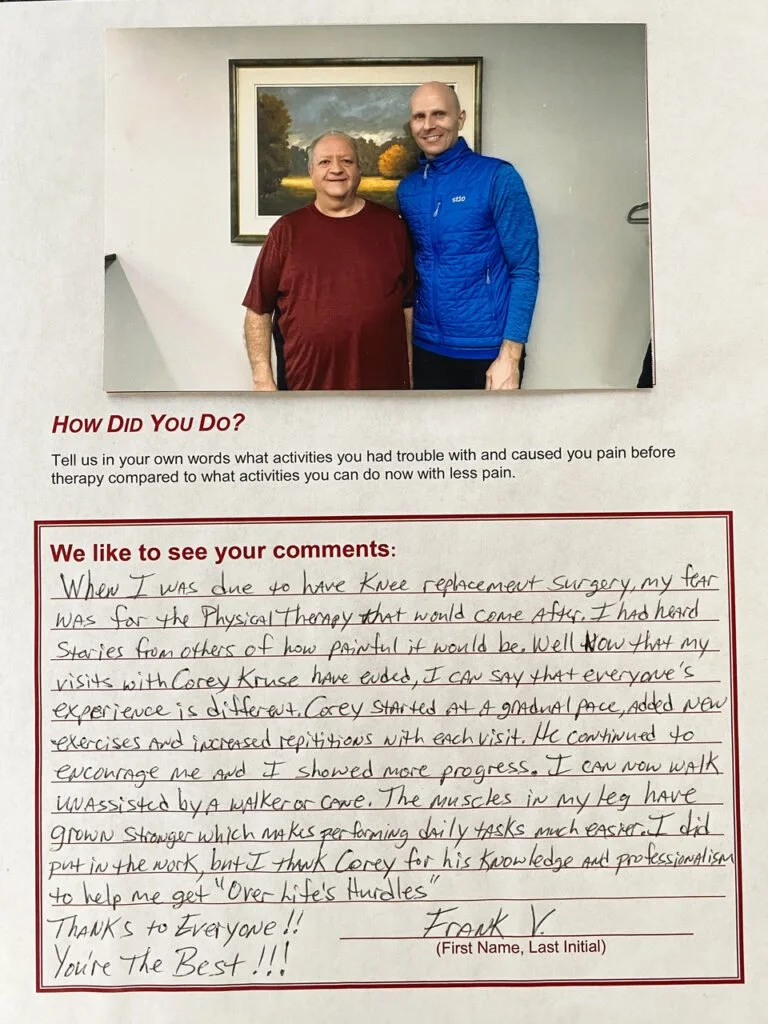 stio
How Did You Do?
Tell us in your own words what activities you had trouble with and caused you pain before
therapy compared to what activities you can do now with less pain.
We like to see your comments:
When I was due to have Knee replacement surgery, my fear
was for the Physical Therapy that would come After. I had heard
stories from others of how painful it would be. Well Now that my
visits with Corey Kruse have ended, I can say that everyone's
experience is different. Corey started at a gradual pace, added new
exercises and increased repititions with each visit. He continued to
encourage me and I showed more progress. I can now walk
unassisted by a walker or cane. The muscles in my leg have
grown stronger which makes performing daily tasks much easier. I did
put in the work, but I thank Corey for his knowledge and professionalism
to help me get "Over Life's Hurdles"
Thanks to Everyone!!
Frank V.
(First Name, Last Initial)
You're The Best!!!